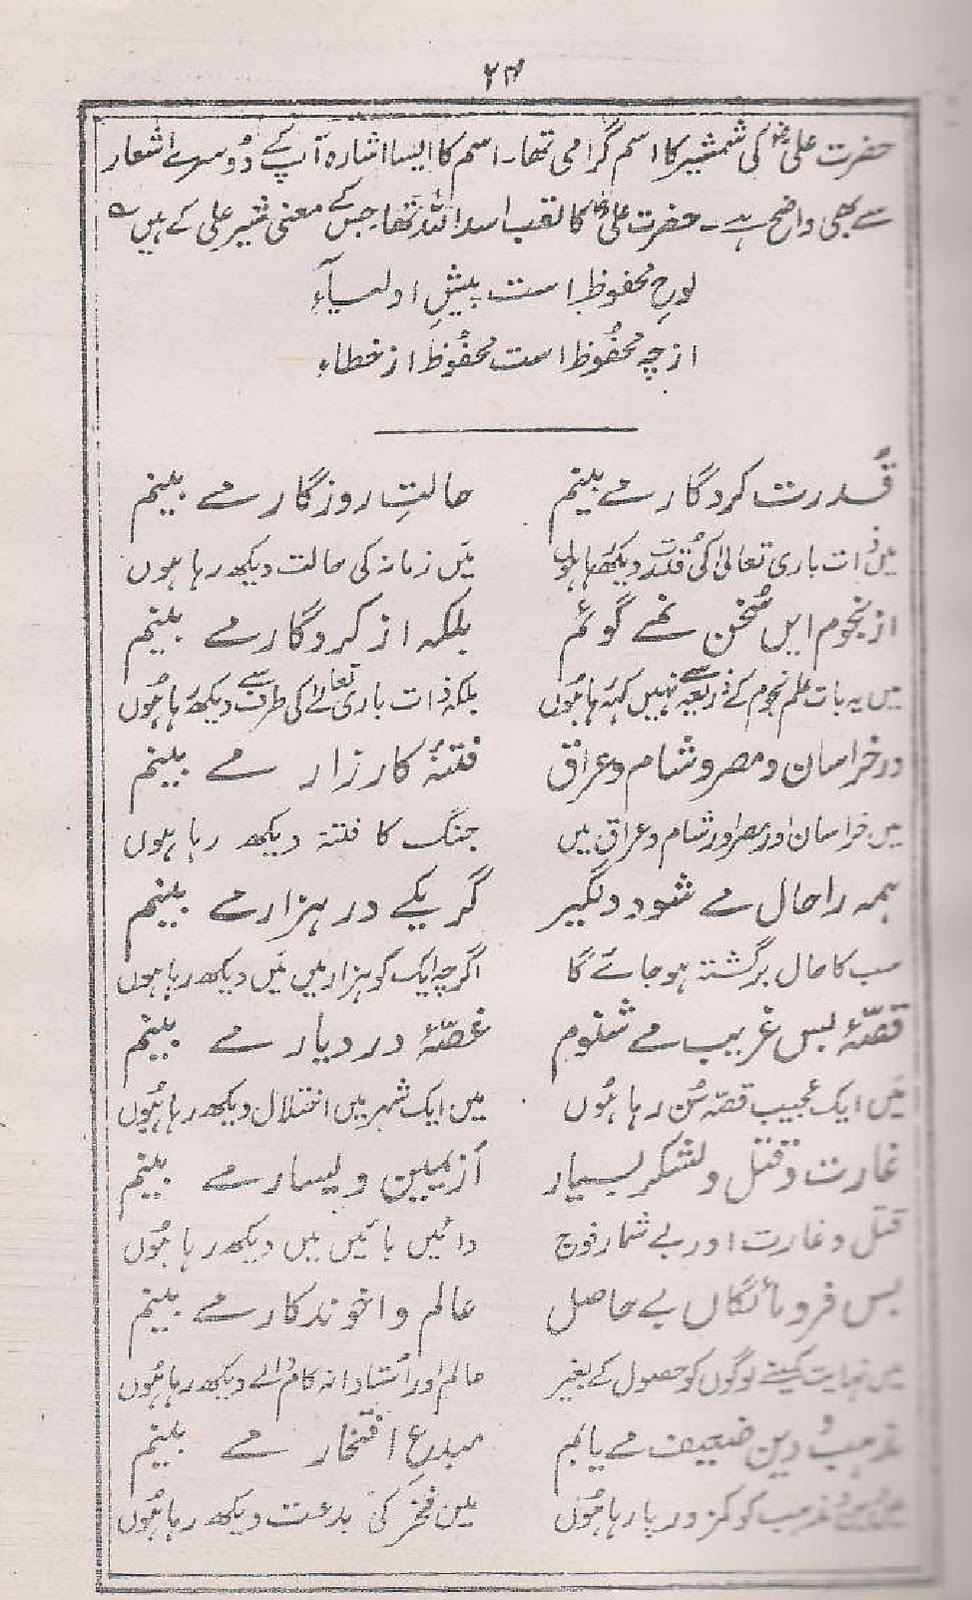 ۲۴
حضرت علیؓ کی شمشیر کا اسم گرامی تھا۔ اسم کا ایسا اشارہ آپ کے دُوسرے اشعار
سے بھی واضح ہے۔ حضرت علیؓ کا لقب اسد اللہ تھا جس کے معنی شیر علی کے ہیں ؎
لوحِ محفوظ است پیشِ اولیآءِ
از چہ محفُوظ است محفُوظ از خطاء
قُدرت کردگار مے بینم حالتِ روزگار مے بینم
میں ذات باری تعالیٰ کی قُدرت دیکھ رہا ہوں مَیں زمانہ کی حالت دیکھ رہا ہوں
از نجوم ایں سُخن نمے گوئم بلکہ از کردگار مے بینم
میں یہ بات علم نجوم کے ذریعہ سے نہیں کہہ رہا ہُوں بلکہ ذات باری تعالےٰ کی طرف سے دیکھ رہا ہُوں
در خراسان و مصر و شام و عراق فتنۂ کارزار مے بینم
میں خراسان اور مصر اور شام و عراق میں جنگ کا فتنۃ دیکھ رہا ہوں
ہمہ را حال مے شود دلگیر گریکے در ہزار مے بینم
سب کا حال برگشتہ ہو جائے گا اگرچہ ایک کو ہزار میں مَیں دیکھ رہا ہوں
قصّۂ بس غریب مے شنوم غصّۂ در دیار مے بینم
مَیں ایک عجیب قصّہ سُن رہا ہُوں میں ایک شہر میں اختلال دیکھ رہا ہُوں
غارت و قتل و لشکر بسیار از یمین و یسار مے بینم
قتل و غارت اور بے شمار فوج دائیں بائیں میں دیکھ رہا ہُوں
بس فرومائگاں بے حاصل عالم و اخوندکار مے بینم
میں نہایت کمینے لوگوں کو حصول کے بغیر عالم اور اُستادانہ کام والے دیکھ رہا ہُوں
مذہب و دین ضعیف مے یابم مبدعِ افتخار مے بینم
مذہب کو کمزور پا رہا ہُوں میں فخر کی بدعت دیکھ رہا ہُوں